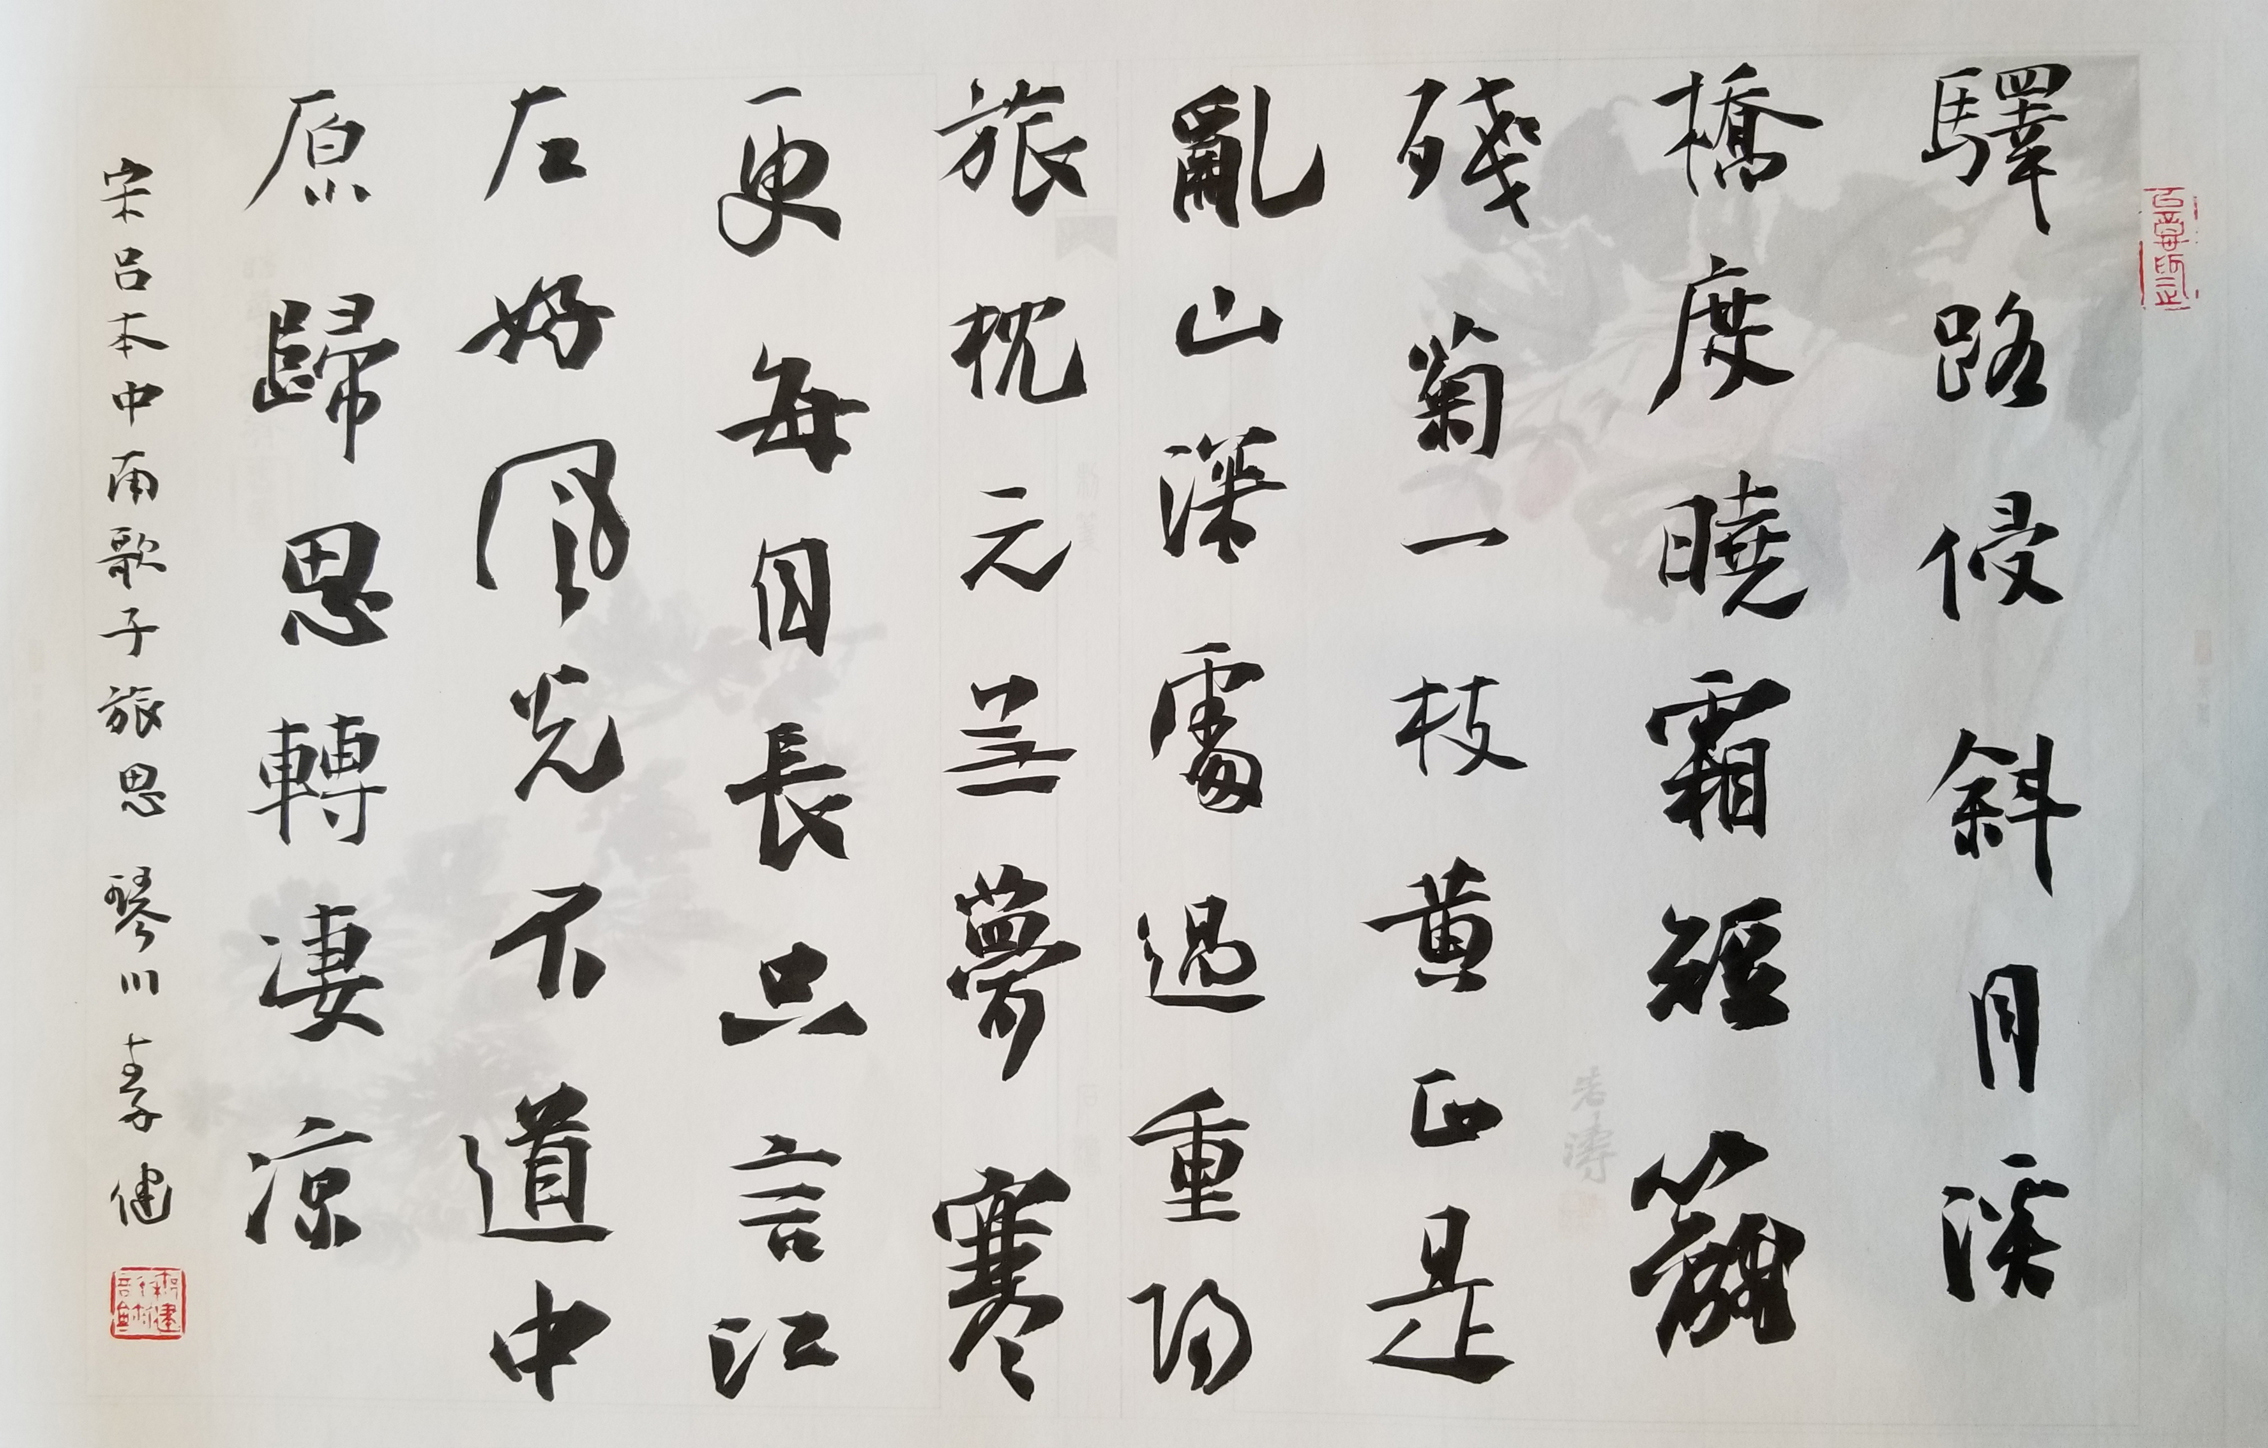 驛路侵斜月溪
橋度曉霜短籬
殘菊一枝黄正是
亂山深處過重陽
旅枕元無夢寒
更每自長只言江
左好風光不道中
原歸思轉凄涼
宋吕本中南歌子旅思 琴川 健